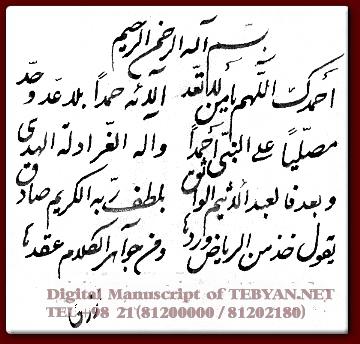 بسم الله الرحمن الرحیم
أحمدك اللّهم یا من لا تعد آلائه حمداً بلا عدّ و حدّ
مصلّیاً علی النبّی أحمداً و آله الغّر ادلّة الهدی
و بعد فالعبد الأثیم الواثق بلطف ربّه الکریم صادق
یقول خذ من الریاض وردها و من جواهر الکلام عقدها
Digital Manuscript of TEBYAN.NET
TEL +98 21 (81200000 / 81202180)